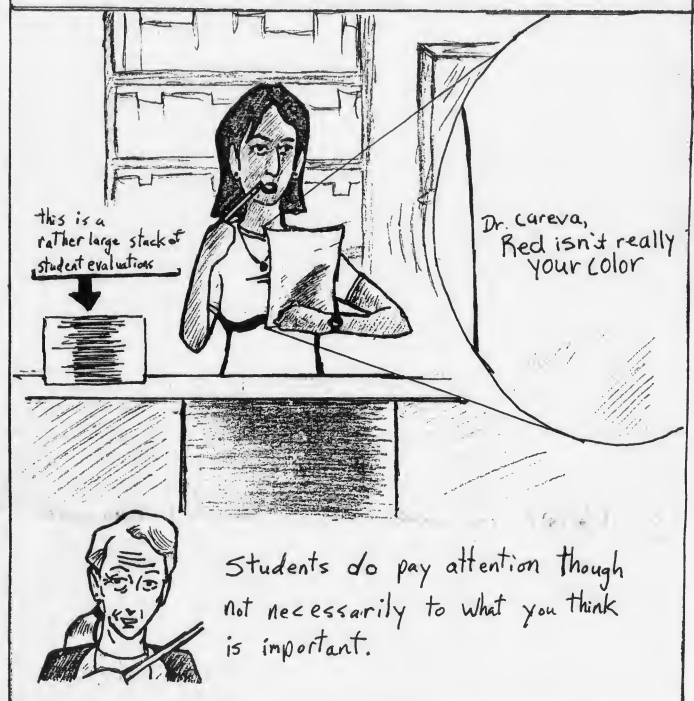 this is a
rather large stack of
student evaluations
Dr. Careva,
Red isn't really
your color
Students do pay attention though
not necessarily to what you think
is important.